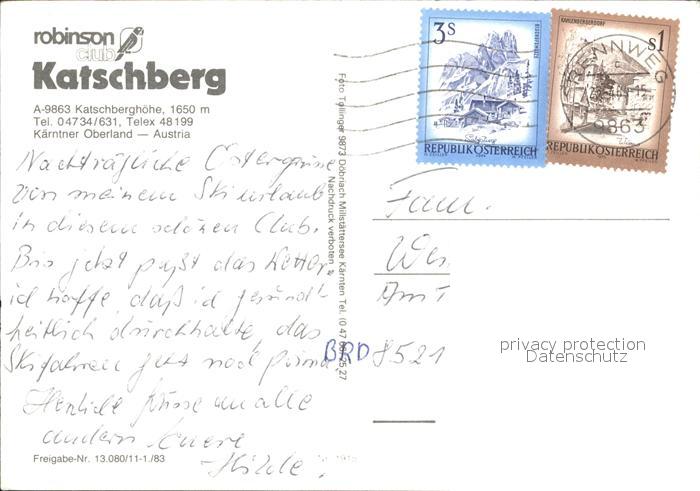 robinson
club
Katschberg
A-9863 Katschberghöhe, 1650 m
Tel. 04734/631, Telex 48199
Kärntner Oberland — Austria
Nachträgliche Ostergrüsse
von meinem Skiurlaub
in diesem schönen Club.
Bis jetzt paßt das Wetter,
ich hoffe, daß ich gesund-
heitlich durchhalte, das
Skifahren geht noch prima.
Herzliche Grüsse an alle
andern Euere
Hilde
Freigabe-Nr. 13.080/11-1./83
Foto Tollinger 9873 Döbriach Millstättersee Kärnten Tel.
Nachdruck verboten
3s
REPUBLIK ÖSTERREICH
KAHLENBERGERDORF
s1
REPUBLIK ÖSTERREICH
RENNWEG
9863
Fam.
BRD 8521
privacy protection
Datenschutz